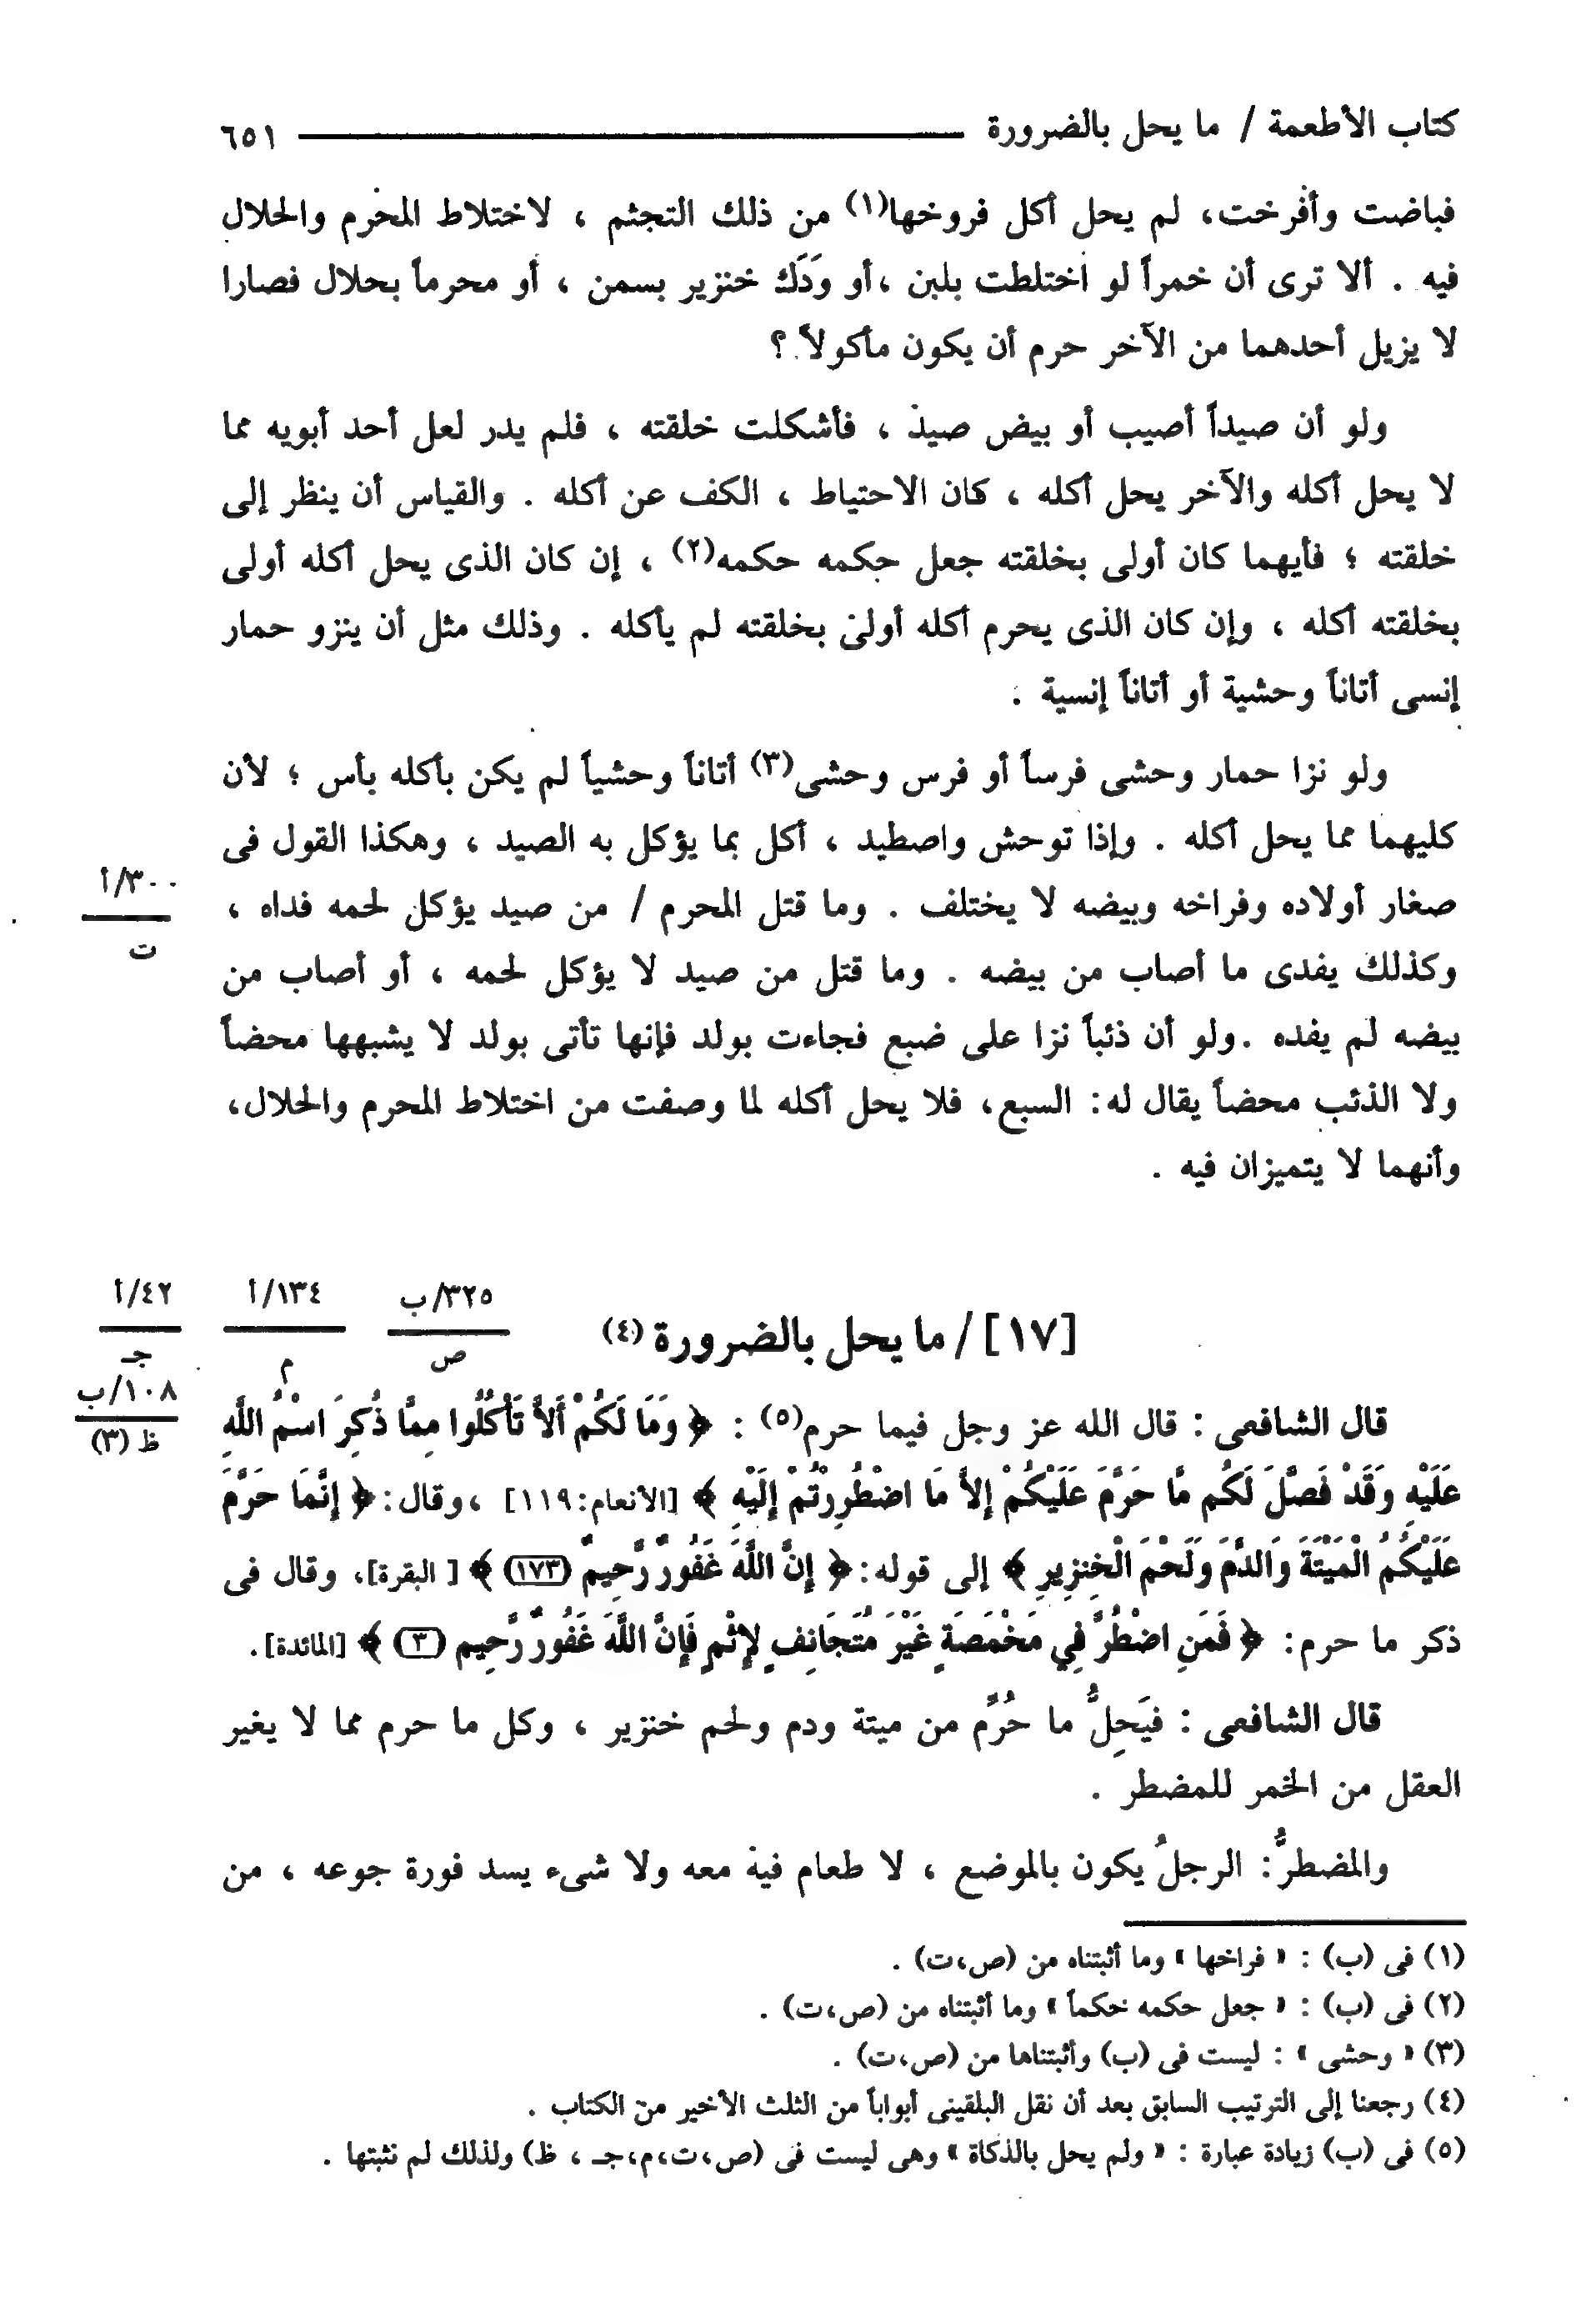 كتاب الأطعمة / ما يحل بالضرورة ــــــــــ ٦٥١
فباضت وأفرخت، لم يحل أكل فروخها(١) من ذلك التجثم ، لاختلاط المحرم والحلال
فيه . ألا ترى أن خمراً لو اختلطت بلبن ،أو وَدَك خنزير بسمن ، أو محرماً بحلال فصارا
لا يزيل أحدهما من الآخر حرم أن يكون مأكولاً ؟
ولو أن صيداً أصيب أو بيض صيد ، فأشكلت خلقته ، فلم يدر لعل أحد أبويه مما
لا يحل أكله والآخر يحل أكله ، كان الاحتياط ، الكف عن أكله . والقياس أن ينظر إلى
خلقته ؛ فأيهما كان أولى بخلقته جعل حكمه حكمه(٢) ، إن كان الذى يحل أكله أولى
بخلقته أكله ، وإن كان الذى يحرم أكله أولى بخلقته لم يأكله . وذلك مثل أن ينزو حمار
إنسى أتاناً وحشية أو أتاناً إنسية .
ولو نزا حمار وحشى فرساً أو فرس وحشى(٣) أتاناً وحشياً لم يكن بأكله بأس ؛ لأن
كليهما مما يحل أكله . وإذا توحش واصطيد ، أكل بما يؤكل به الصيد ، وهكذا القول فى
صغار أولاده وفراخه وبيضه لا يختلف . وما قتل المحرم / من صيد يؤكل لحمه فداه ،
٣٠٠/أ
ت
وكذلك يفدى ما أصاب من بيضه . وما قتل من صيد لا يؤكل لحمه ، أو أصاب من
بيضه لم يفده .ولو أن ذئباً نزا على ضبع فجاءت بولد فإنها تأتى بولد لا يشبهها محضاً
ولا الذئب محضاً يقال له: السبع، فلا يحل أكله لما وصفت من اختلاط المحرم والحلال،
وأنهما لا يتميزان فيه .
[١٧] / ما يحل بالضرورة (٤)
٣٢٥/ب
ص
١٣٤/أ
م
٤٢/أ
جـ
١٠٨/ب
ظ (٣)
قال الشافعى : قال الله عز وجل فيما حرم(٥) : ﴿ وَمَا لَكُمْ أَلاَّ تَأْكُلُوا مِمَّا ذُكِرَ اسْمُ اللَّهِ
عَلَيْهِ وَقَدْ فَصَّلَ لَكُم مَّا حَرَّمَ عَلَيْكُمْ إِلاَّ مَا اضْطُرِرْتُمْ إِلَيْهِ ﴾ [الأنعام:١١٩] ،وقال:﴿ إِنَّمَا حَرَّمَ
عَلَيْكُمُ الْمَيْتَةَ وَالدَّمَ وَلَحْمَ الْخِنزِيرِ ﴾ إلى قوله:﴿ إِنَّ اللَّهَ غَفُورٌ رَّحِيمٌ (١٧٣) ﴾ [ البقرة]، وقال فى
ذكر ما حرم: ﴿ فَمَنِ اضْطُرَّ فِي مَخْمَصَةٍ غَيْرَ مُتَجَانِفٍ لإِثْمٍ فَإِنَّ اللَّهَ غَفُورٌ رَّحِيم (٣) ﴾ [المائدة].
قال الشافعى : فيَحِلُّ ما حُرِّم من ميتة ودم ولحم خنزير ، وكل ما حرم مما لا يغير
العقل من الخمر للمضطر .
والمضطرُّ: الرجلُ يكون بالموضع ، لا طعام فيه معه ولا شىء يسد فورة جوعه ، من
(١) فى (ب) : « فراخها » وما أثبتناه من (ص،ت) .
(٢) فى (ب) : « جعل حكمه حكماً » وما أثبتناه من (ص،ت) .
(٣) « وحشى » : ليست فى (ب) وأثبتناها من (ص،ت) .
(٤) رجعنا إلى الترتيب السابق بعد أن نقل البلقينى أبواباً من الثلث الأخير من الكتاب .
(٥) فى (ب) زيادة عبارة : « ولم يحل بالذكاة » وهى ليست فى (ص،ت،م،جـ ، ظ) ولذلك لم نثبتها .